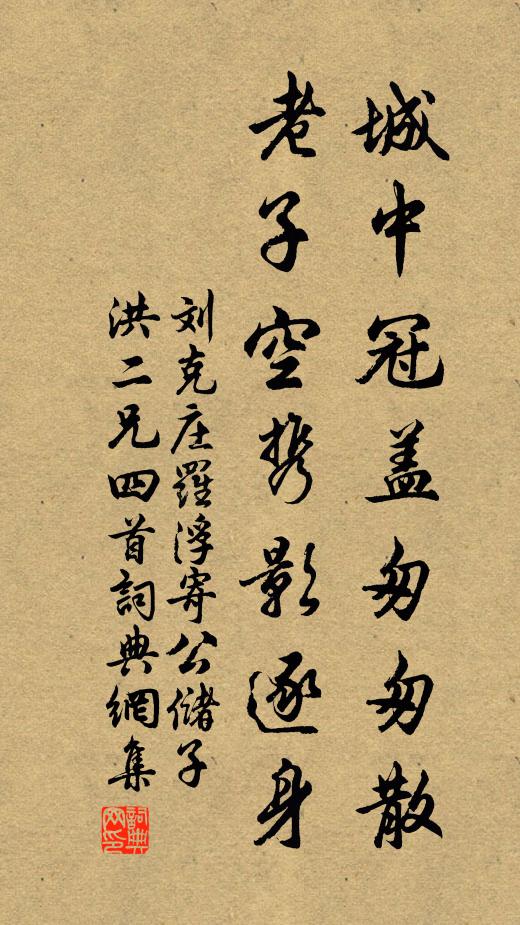 城中冠盖匆匆散
老子空携影逐身
刘克庄羅浮寄公儲子
洪二兄四首詞典網集
詞典網印